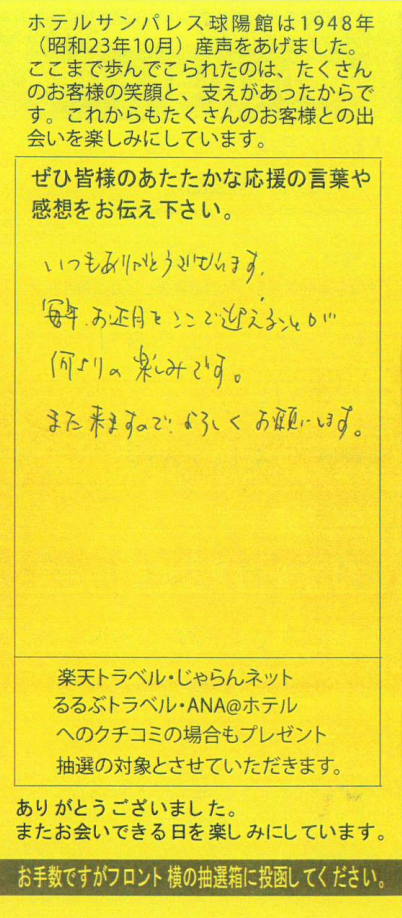 ホテルサンパレス球陽館は1948年
（昭和23年10月）産声をあげました。
ここまで歩んでこられたのは、たくさん
のお客様の笑顔と、支えがあったからで
す。これからもたくさんのお客様との出
会いを楽しみにしています。
ぜひ皆様のあたたかな応援の言葉や
感想をお伝え下さい。
いつもありがとうございます。
毎年、お正月をここで迎えることが
何よりの楽しみです。
また来ますので、よろしくお願いします。
楽天トラベル・じゃらんネット
るるぶトラベル・ANA@ホテル
へのクチコミの場合もプレゼント
抽選の対象とさせていただきます。
ありがとうございました。
またお会いできる日を楽しみにしています。
お手数ですがフロント横の抽選箱に投函してください。